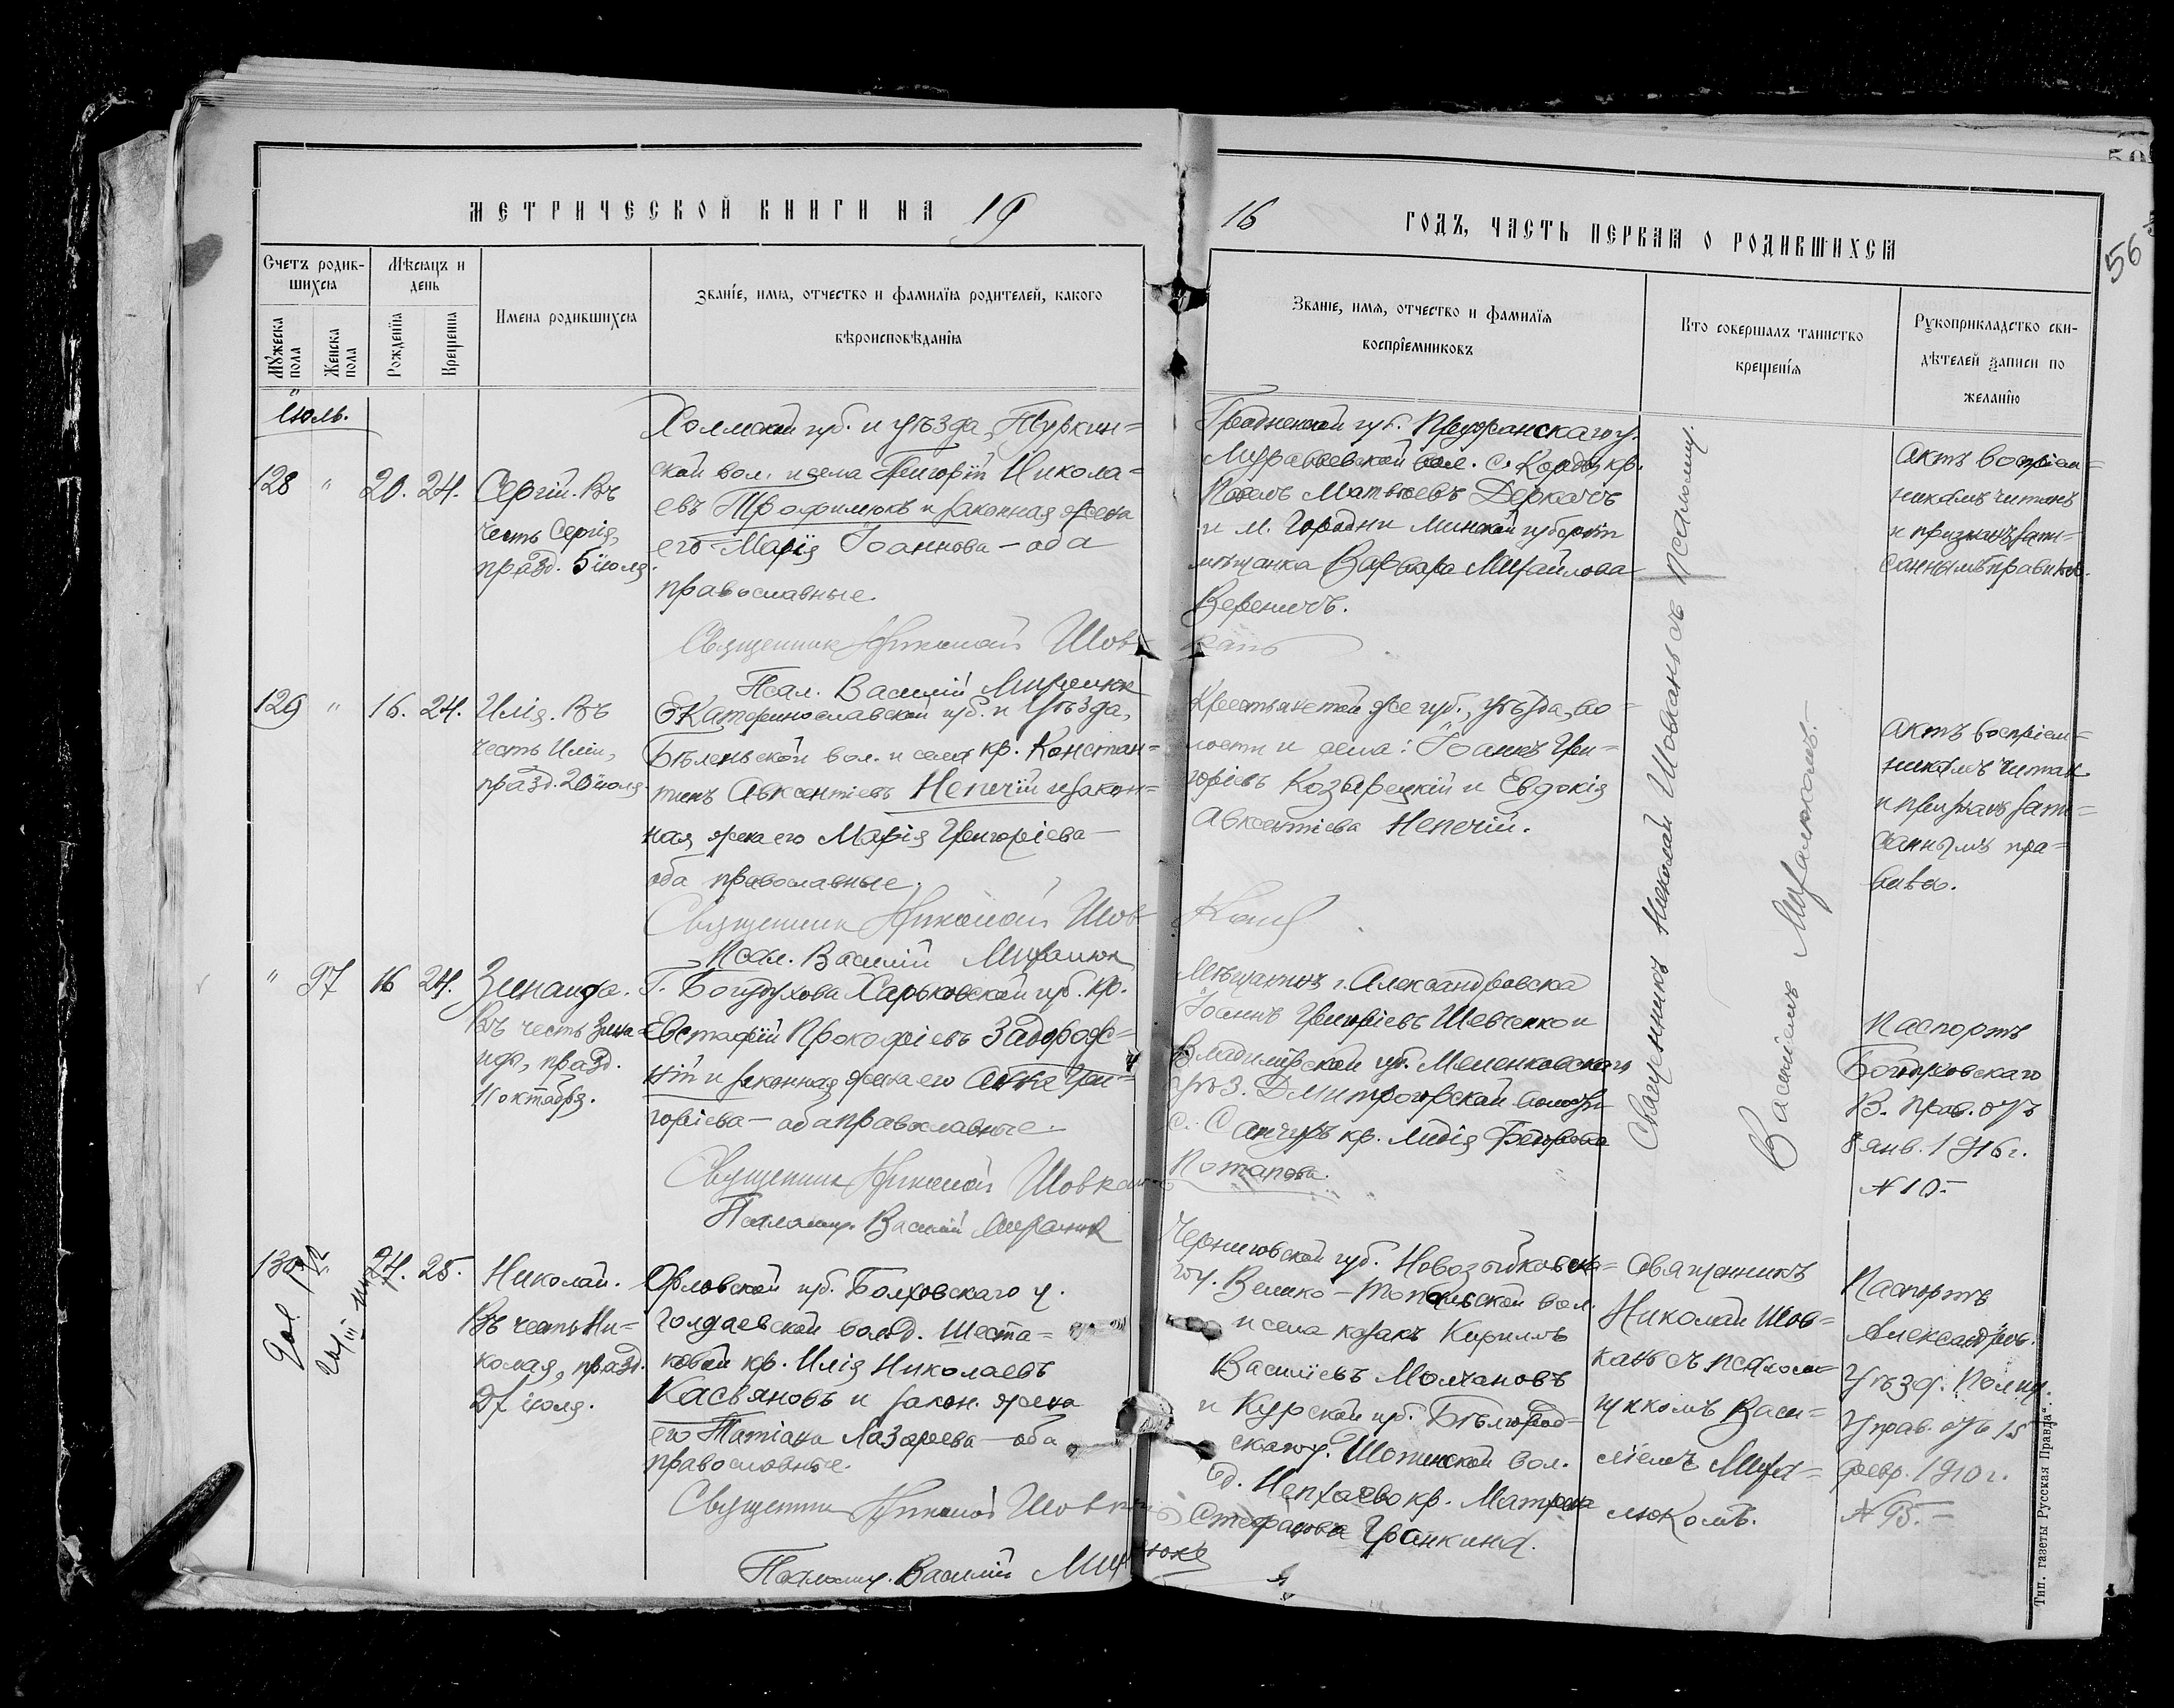 МЕТРИЧЕСКОЙ КНИГИ НА 19
16 ГОДЪ, ЧАСТЬ ПЕРВАЯ О РОДИВШИХСЯ
56
Счетъ родив-
шихся
Мужеска пола
Женска пола
Мѣсяцъ и
день
Рожденія
Крещенія
Имена родившихся
Званіе, имя, отчество и фамилія родителей, какого
вѣроисповѣданія
Званіе, имя, отчество и фамилія
воспріемниковъ
Кто совершалъ таинство
крещенія
Рукоприкладство сви-
дѣтелей записи по
желанію
Іюль.
128 " 20. 24.
Сергій. Въ
честь Сергія,
празд. 5 іюля.
Холмской губ. и уѣзда, Туркин=
ской вол. и села Григорій Никола=
евъ Трофимюкъ и законная жена
его Марія Іоаннова — оба
православные.
Священник Николай Шов
канъ
Псал. Василій Михалюк
Гродненской губ. Пружанскаго у.
Муравьевской вол. с. кр.
Павелъ Матвѣевъ Деркачъ
и м. Городни Минской губерніи
мѣщанка Варвара Михайлова
Вереничъ.
Актъ воспріем=
никамъ читанъ
и признанъ запи=
саннымъ правильно.
129 " 16. 24.
Илія. Въ
честь Иліи,
празд. 20 іюля.
Екатеринославской губ. и уѣзда,
Бѣленьской вол. и села кр. Констан=
тинъ Авксентіевъ Непочій и закон=
ная жена его Марія Григоріева —
оба православные.
Священник Николай Шов
канъ
Псал. Василій Михалюк
Крестьяне той же губ., уѣзда, во=
лости и села: Іоаннъ Гри=
горіевъ Козырецкій и Евдокія
Авксентіева Непочій.
Актъ воспріем=
никамъ читан
и признанъ запи=
саннымъ пра=
вильно.
" 97 16 24.
Зинаида.
Въ честь Зина=
иды, празд.
11 октября.
Г. Богодухова Харьковской губ. кр.
Евстафій Прокофіевъ Задорож=
ній и законная жена его Анна Гри=
горіева — оба православные.
Священник Николай Шовкан
Псаломщ. Василій Михалюк
Мѣщанинъ г. Александровска
Іоаннъ Григоріевъ Шевченко и
Владимірской губ. Меленковскаго
уѣз. Дмитрогорской волости
с. Санчуръ кр. Лидія Ѳеодорова
Потапова.
Священникъ Николай Шовканъ съ псаломщ.
Василіемъ Михалюкомъ.
Паспортъ
Богодуховскаго
В. прав. отъ
8 янв. 1916 г.
№ 10.
130 24. 25.
Николай.
Въ честь Ни=
колая, празд.
27 іюля.
Орловской губ. Болховскаго у.
Голдаевской вол. д. Шеста=
ковой кр. Илія Николаевъ
Касьяновъ и закон. жена
его Татіана Лазарева — оба
православные.
Священник Николай Шовкан
Псаломщ. Василій Михалюкъ
Черниговской губ. Новозыбковска=
го у. Велико-Топальской вол.
и села казакъ Кириллъ
Василіевъ Молчановъ
и Курской губ. Бѣлгород=
скаго у. Шопинской вол.
д. Непхаево кр. Матрона
Стефанова Гранкина.
Священникъ
Николай Шов=
канъ съ псалом=
щикомъ Васи=
ліемъ Миха=
люкомъ.
Паспортъ
Александров.
Уѣзд. Полиц.
Управ. отъ 15
февр. 1910 г.
№ 95.
Тип. газеты „Русская Правда“.